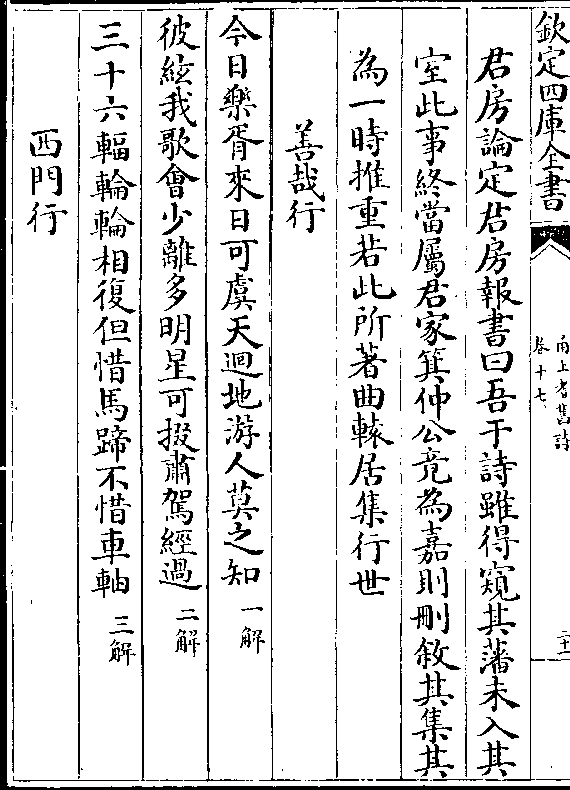 欽定四庫全書
甬上耆舊詩
卷十七
二十一
君房論定君房報書曰吾于詩雖得窺其藩未入其
室此事終當屬君家箕仲公竟為嘉則刪敘其集其
為一時推重若此所著曲轅居集行世
善哉行
今日樂胥來日可虞天迴地游人莫之知一解
彼絃我歌會少離多明星可掇肅駕經過二解
三十六輻輪輪相復但惜馬蹄不惜車軸三解
西門行